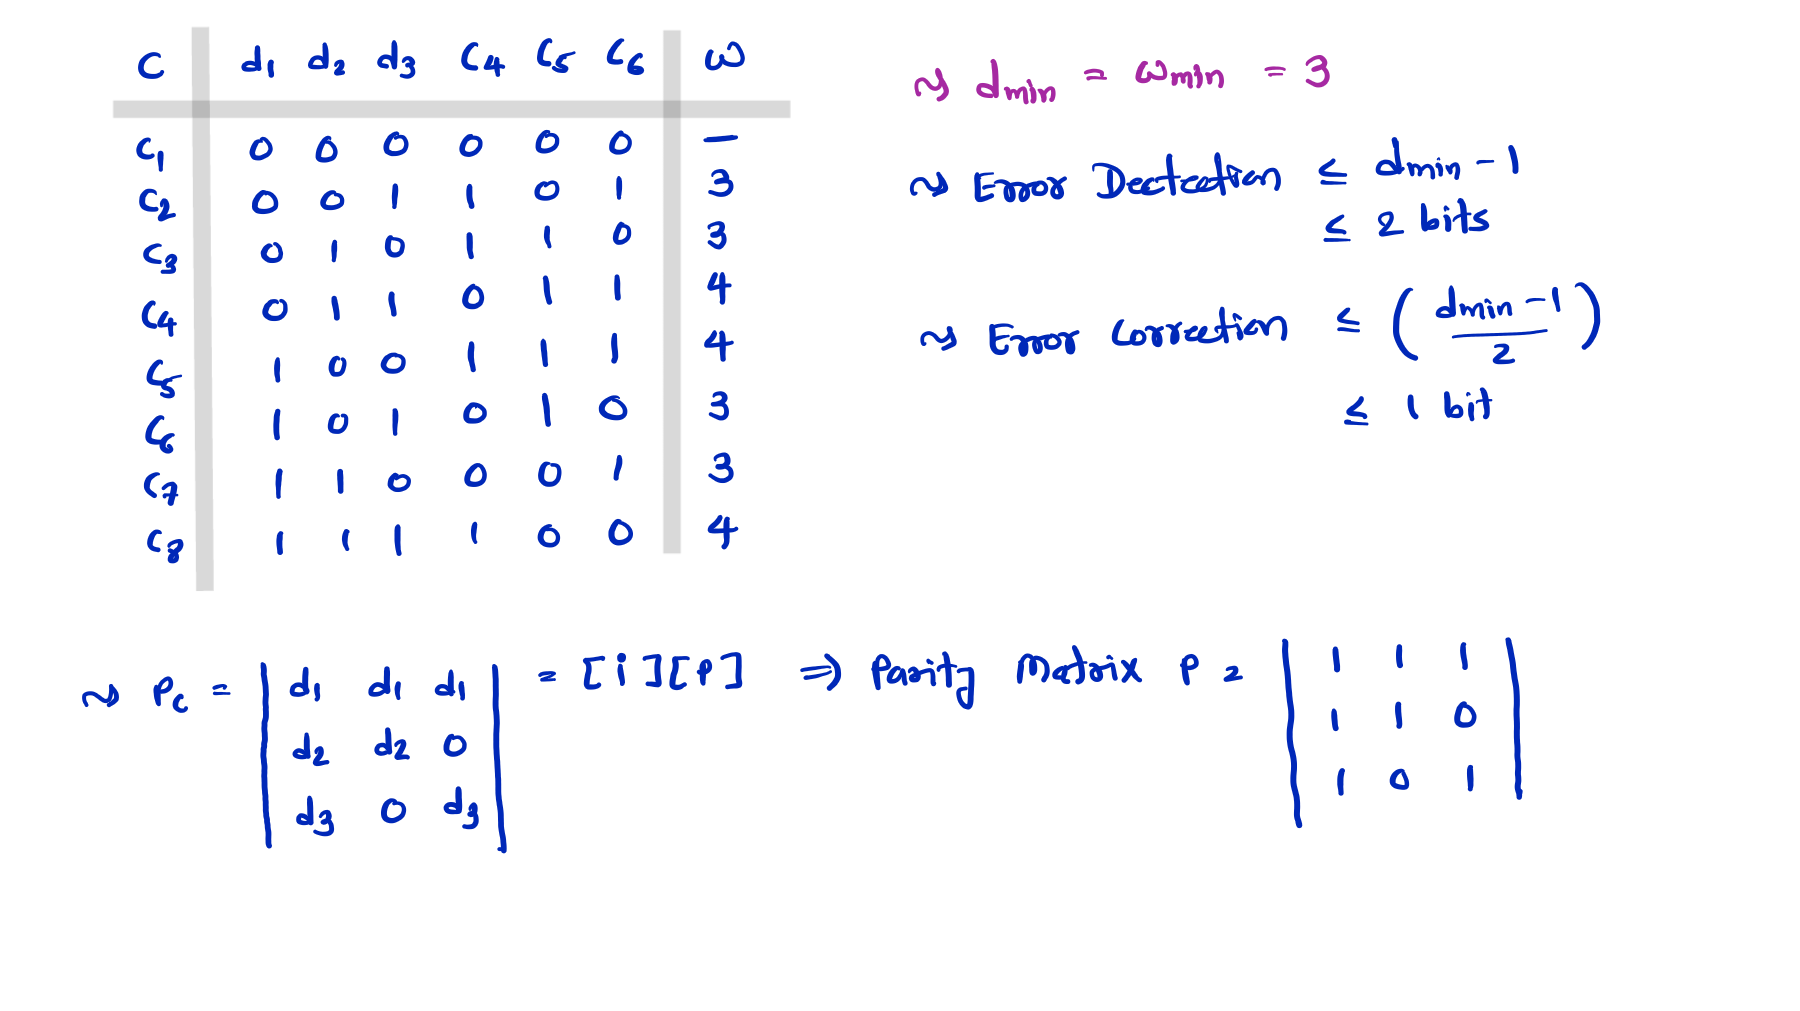 C d1 d2 d3 C4 C5 C6 ω
C1 0 0 0 0 0 0 —
C2 0 0 1 1 0 1 3
C3 0 1 0 1 1 0 3
C4 0 1 1 0 1 1 4
C5 1 0 0 1 1 1 4
C6 1 0 1 0 1 0 3
C7 1 1 0 0 0 1 3
C8 1 1 1 1 0 0 4
~> dmin = ωmin = 3
~> Error Dectection ≤ dmin - 1
≤ 2 bits
~> Error Correction ≤ (dmin - 1 / 2)
≤ 1 bit
~> Pc = | d1 d1 d1 | = [i][P] ⇒ Parity Matrix P = | 1 1 1 |
| d2 d2 0 | | 1 1 0 |
| d3 0 d3 | | 1 0 1 |